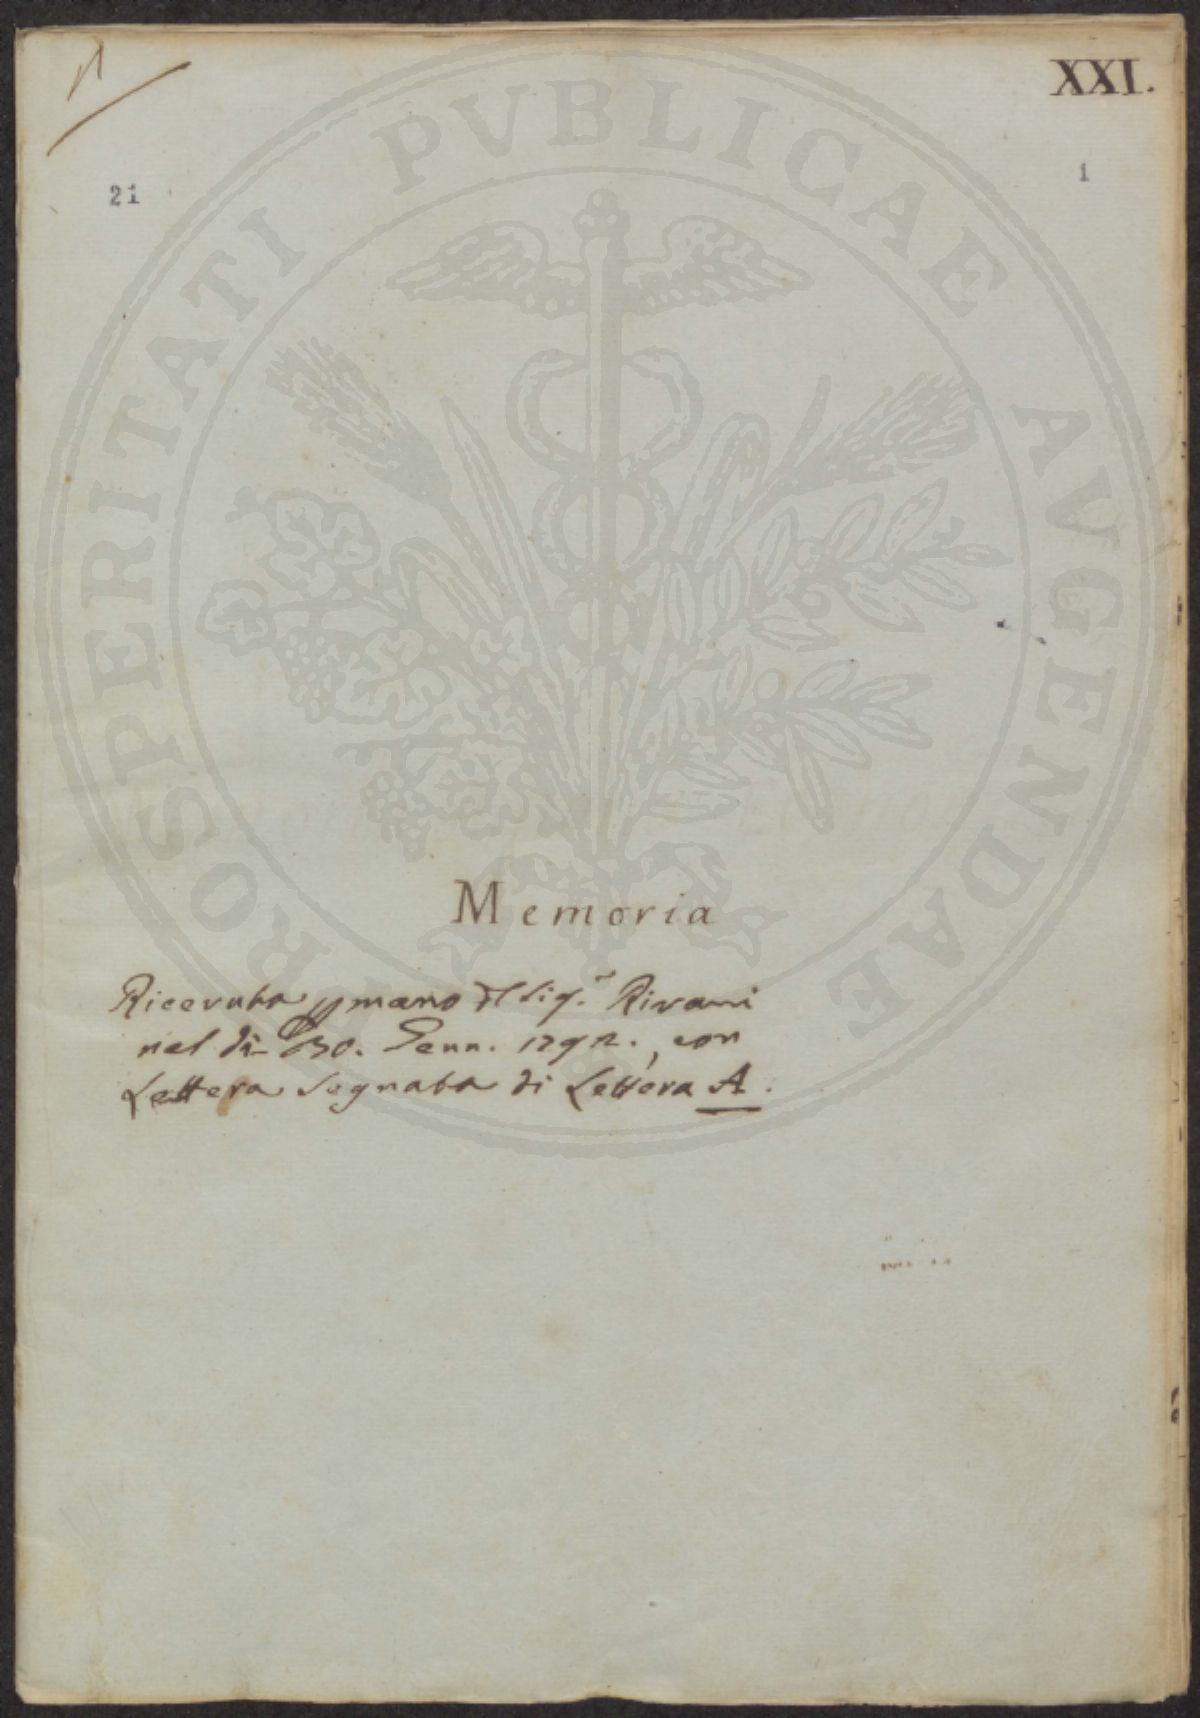 XXI.
21
1
PROSPERITATI PVBLICAE AVGENDAE
Memoria
Ricevuta p mano dl Sig.r Rivani
nel dì 30. Genn. 1792., con
Lettera segnata di Lettera A.